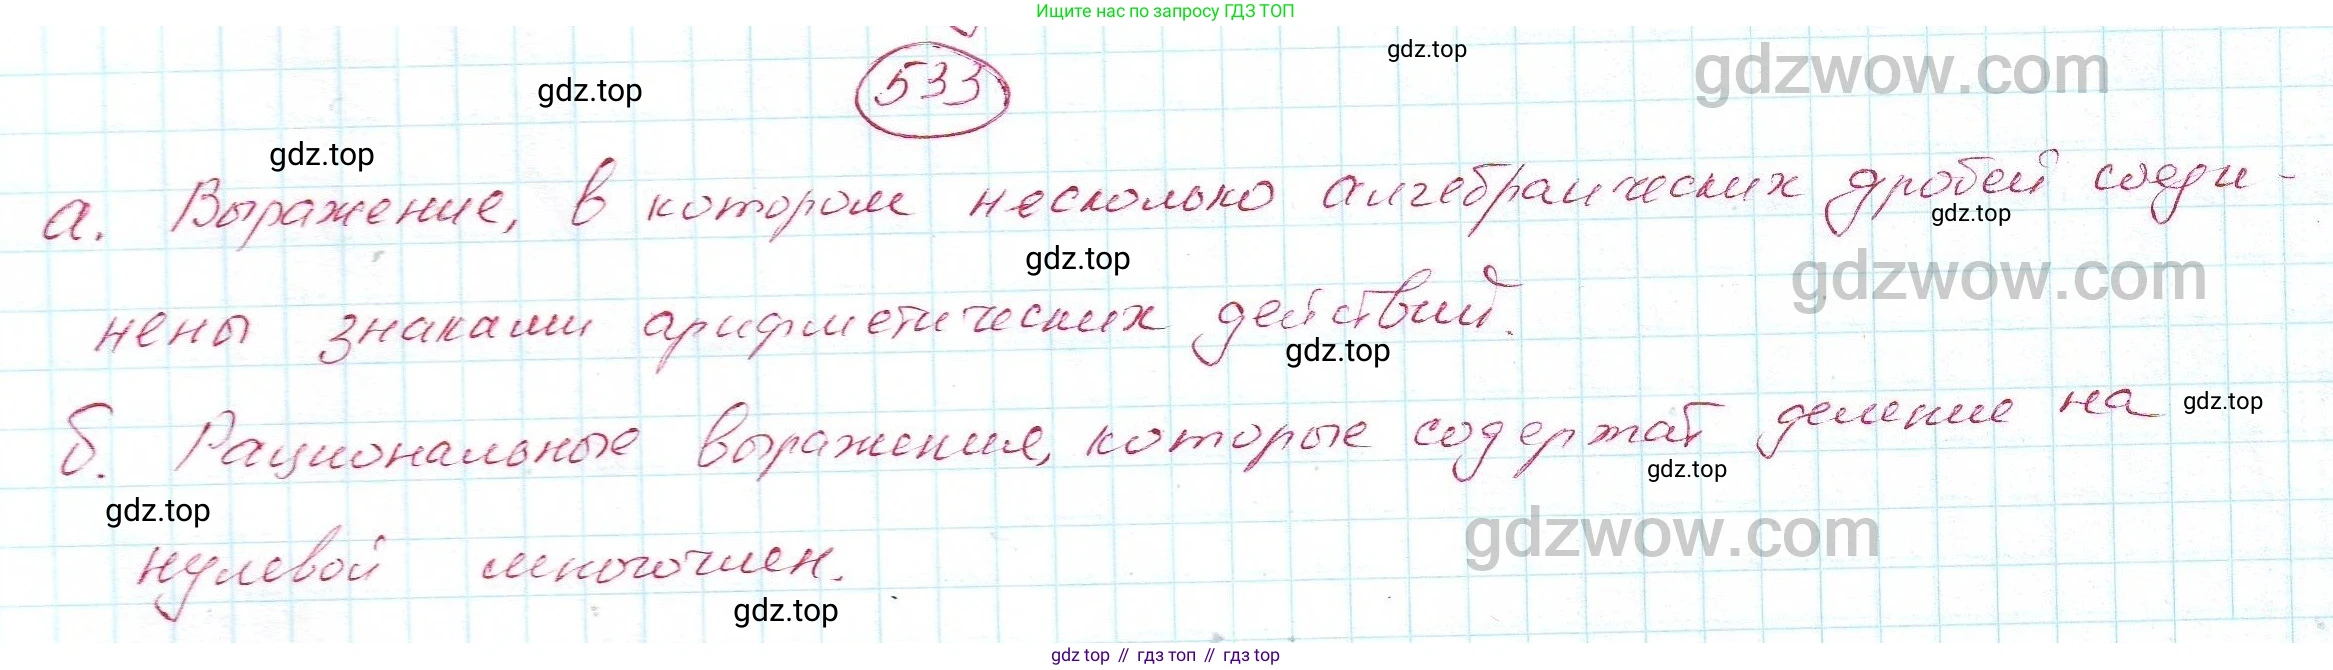 Ищите нас по запросу ГДЗ ТОП
533
gdz.top
gdzwow.com
gdz.top
gdz.top
а. Выражение, в котором несколько алгебраических дробей соеди-
gdz.top
gdz.top
gdzwow.com
нены знаками арифметических действий.
gdz.top
б. Рациональные выражения, которые содержат деление на
gdz.top
gdz.top
gdz.top
gdzwow.com
нулевой многочлен.
gdz.top
gdz top // гдз топ // gdz top